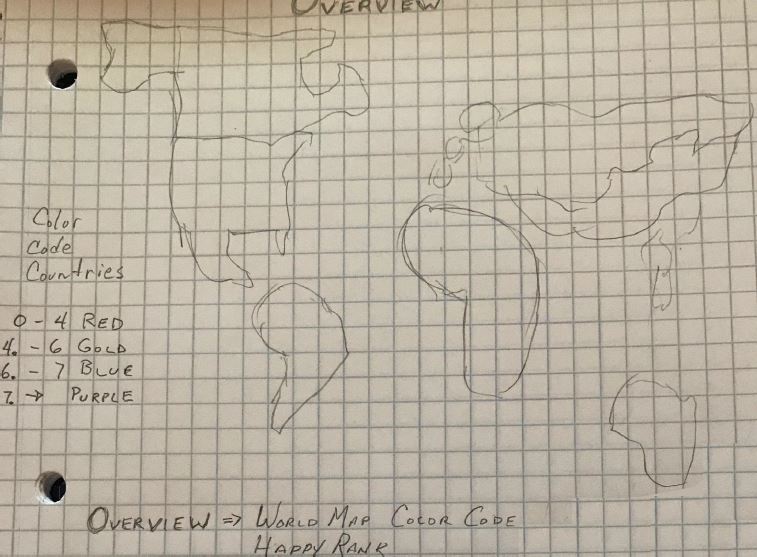 OVERVIEW
Color
Code
Countries
0 - 4 RED
4. - 6 GOLD
6. - 7 BLUE
7. → PURPLE
OVERVIEW ⇒ WORLD MAP COLOR CODE
HAPPY RANK